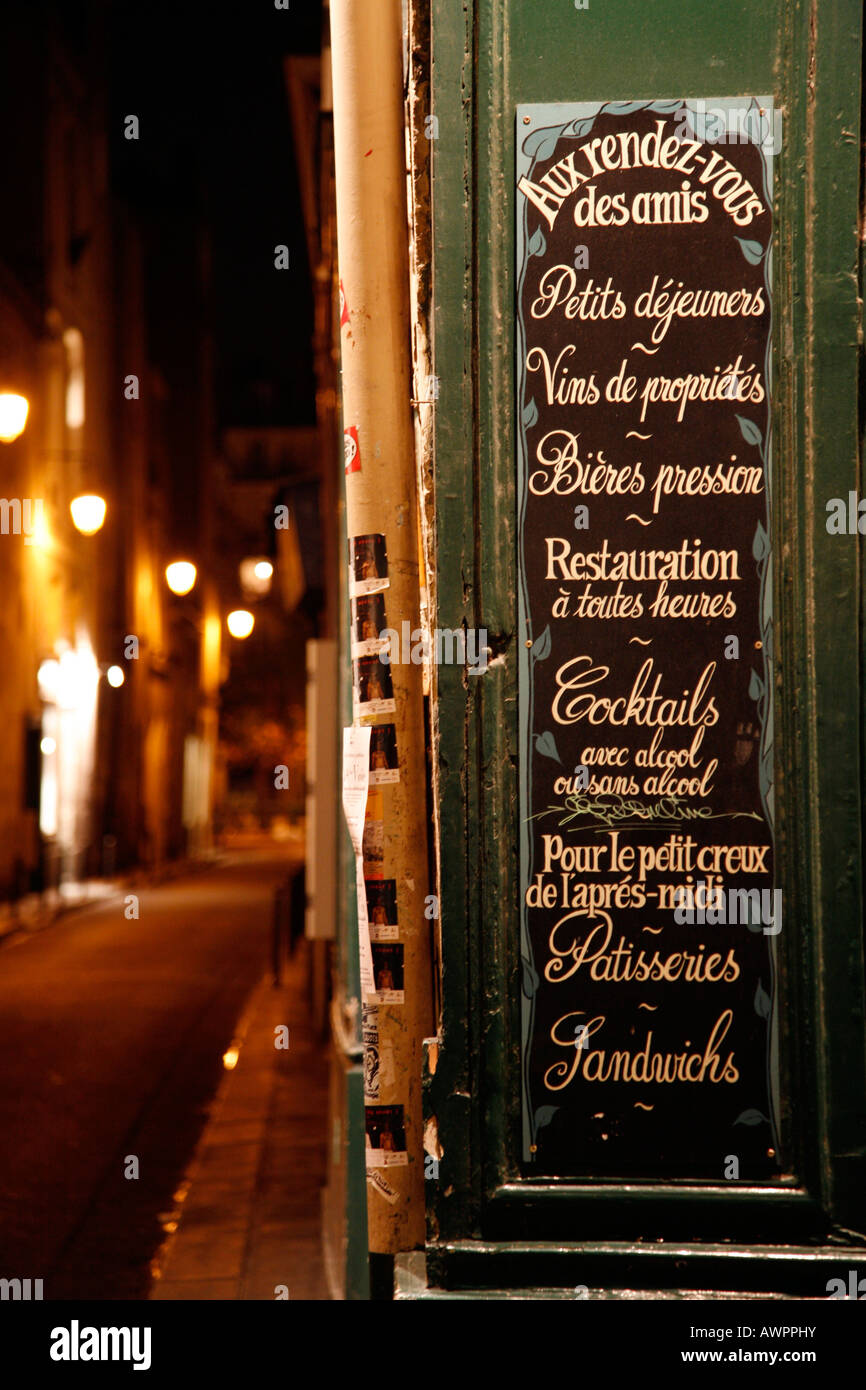 Aux rendez-vous
des amis
Petits déjeuners
~
Vins de propriétés
~
Bières pression
~
Restauration
à toutes heures
~
Cocktails
avec alcool
ou sans alcool
Pour le petit creux
de l'aprés-midi
~
Patisseries
~
Sandwichs
~
alamy
Image ID: AWPPHY
www.alamy.com